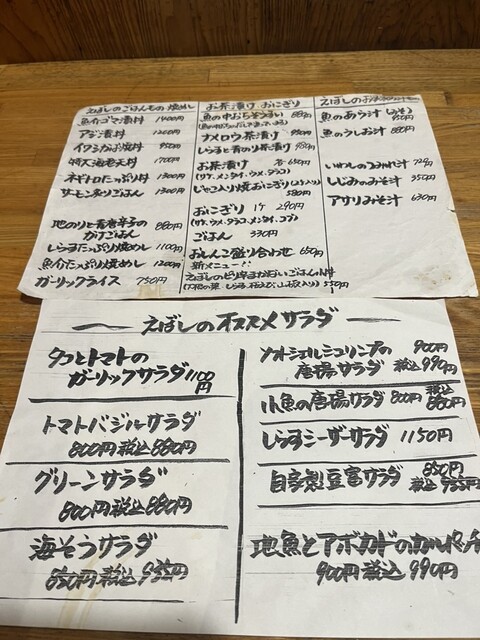 えぼしのごはんもの 焼めし
魚介ゴマ漬丼 1400円
アジ漬丼 1200円
イクラかぶ焼丼 950円
特大海老天丼 1700円
ネギトロたっぷり丼 1300円
サーモン炙りごはん 1300円
地のりと青唐辛子の
ガケごはん 880円
しらすたっぷり焼めし 1100円
魚介たっぷり焼めし 1200円
ガーリックライス 750円
お茶漬け おにぎり
魚の中おちぞうすい 880円
ナメロウ茶漬け 990円
しらすと青のり茶漬け
お茶漬け 各650円
(サケ、メンタイ、ウメ、タラコ)
じゃこ入り焼おにぎり(2ケ入り)
580円
おにぎり 1ケ 290円
(サケ、ウメ、タラコ、メンタイ、コブ)
ごはん 330円
おしんこ盛り合わせ 650円
新メニュー!!
550円
えぼしの
魚のあら汁 (みそ)
850円
魚のうしお汁 880円
いわしのつみれ汁 720円
しじみのみそ汁 350円
アサリみそ汁 630円
えぼしのオススメサラダ
タコとトマトの
ガーリックサラダ 1100円
トマトバジルサラダ
800円 税込 880円
グリーンサラダ
800円 税込 880円
海そうサラダ
850円 税込 935円
ソフトシェルシュリンプの 900円
唐揚サラダ 税込 990円
小魚の唐揚サラダ 800円 税込 880円
しらすシーザーサラダ 1150円
自家製豆富サラダ 850円
税込 935円
地魚とアボカドのカルパッチ
900円 税込 990円